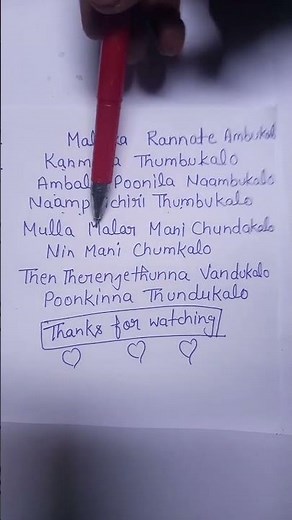 Rannate Ambukal
Thumbukalo
Poonila Naambukalo
Thumbukalo
Mulla Malar Mani Chundakalo
Nin Mani Chumkalo
Then Therenjethunna Vandukalo
Poonkinna Thundukalo
Thanks for watching